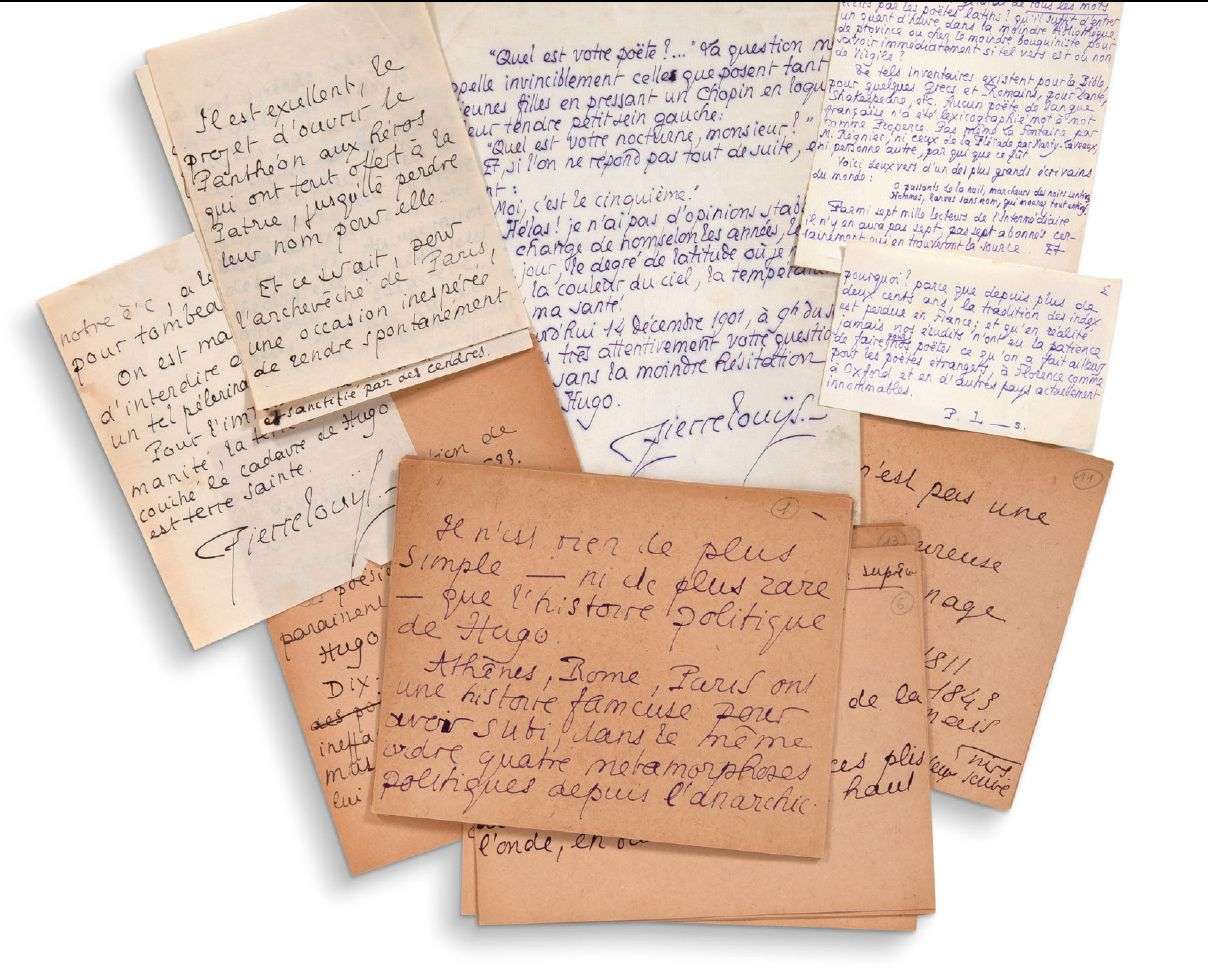 Il est excellent, le
projet d'ouvrir le
Panthéon aux héros
qui ont tout offert à la
Patrie, jusqu'île perdre
leur nom pour elle.
Et ce serait, pour
l'archevêché de Paris,
une occasion inespérée
de rendre spontanément
sanctifié par des cendres.
notre
pour tombea
On est ma
d'interdire a
un tel pélerina
Pour l'im
manité, la
couché le cadavre de Hugo
est terre sainte.
Pierre Louÿs
"Quel est votre poëte ?..." Va question
ppelle invinciblement celles que posent tant
eunes filles en pressant un Chopin en
eur tendre petit sein gauche:
"Quel est votre nocturne, monsieur ? "
Et, si l'on ne répond pas tout de suite,
nt :
Moi, c'est le cinquième."
Hélas ! je n'ai pas d'opinions
change de nom selon les années, le
jour, le degré de latitude où je
la couleur du ciel, la
ma santé
rd'hui 14 Décembre 1901, à 9h du s
très attentivement votre questio
sans la moindre hésitation
Hugo.
Pierre Louÿs
de tous les mots
écrits par les poëtes latins ? qu'il suffit d'entrer
un quart d'heure dans la moindre bibliothèque
de province ou chez le moindre bouquiniste pour
savoir immédiatement si tel vers est ou non
de Virgile ?
De tels inventaires existent pour la Bible,
pour quelques Grecs et Romains, pour Dante,
Shakespeare, etc. Aucun poëte de langue
française n'a été lexicographié mot à mot
comme Properce. Pas même La Fontaine par
M. Regnier, ni ceux de la Pléiade par Marty-Laveaux,
ni personne autre, par qui que ce fût.
Voici deux vers d'un des plus grands écrivains
du monde :
O passants de la nuit, marcheurs des noirs sentiers
Hommes, larves sans nom, qui mourez tout entiers
Parmi sept mille lecteurs de l'Intermédiaire
il n'y en aura pas sept, pas sept abonnés cer-
tainement qui en trouveront la source. Et
2
pourquoi ? parce que depuis plus de
deux cents ans, la tradition des index
est perdue en France; et qu'en réalité
jamais nos érudits n'ont eu la patience
de faire
poëtes ce qu'on a fait ailleurs
pour les poëtes étrangers, à Florence comme
à Oxford et en d'autres pays actuellement
innommables.
P. L—s.
tion de
poésie
Hugo
Dix
ineffa
mais
lui
1
Il n'est rien de plus
simple — ni de plus rare
— que l'histoire politique
de Hugo
Athènes, Rome, Paris ont
une histoire fameuse pour
avoir subi, dans le même
ordre quatre métamorphoses
politiques depuis l'anarchie
n'est pas une
11
ureuse
nage
1811
1843
mais
13
6
de la
ces plis
haut
l'onde, en